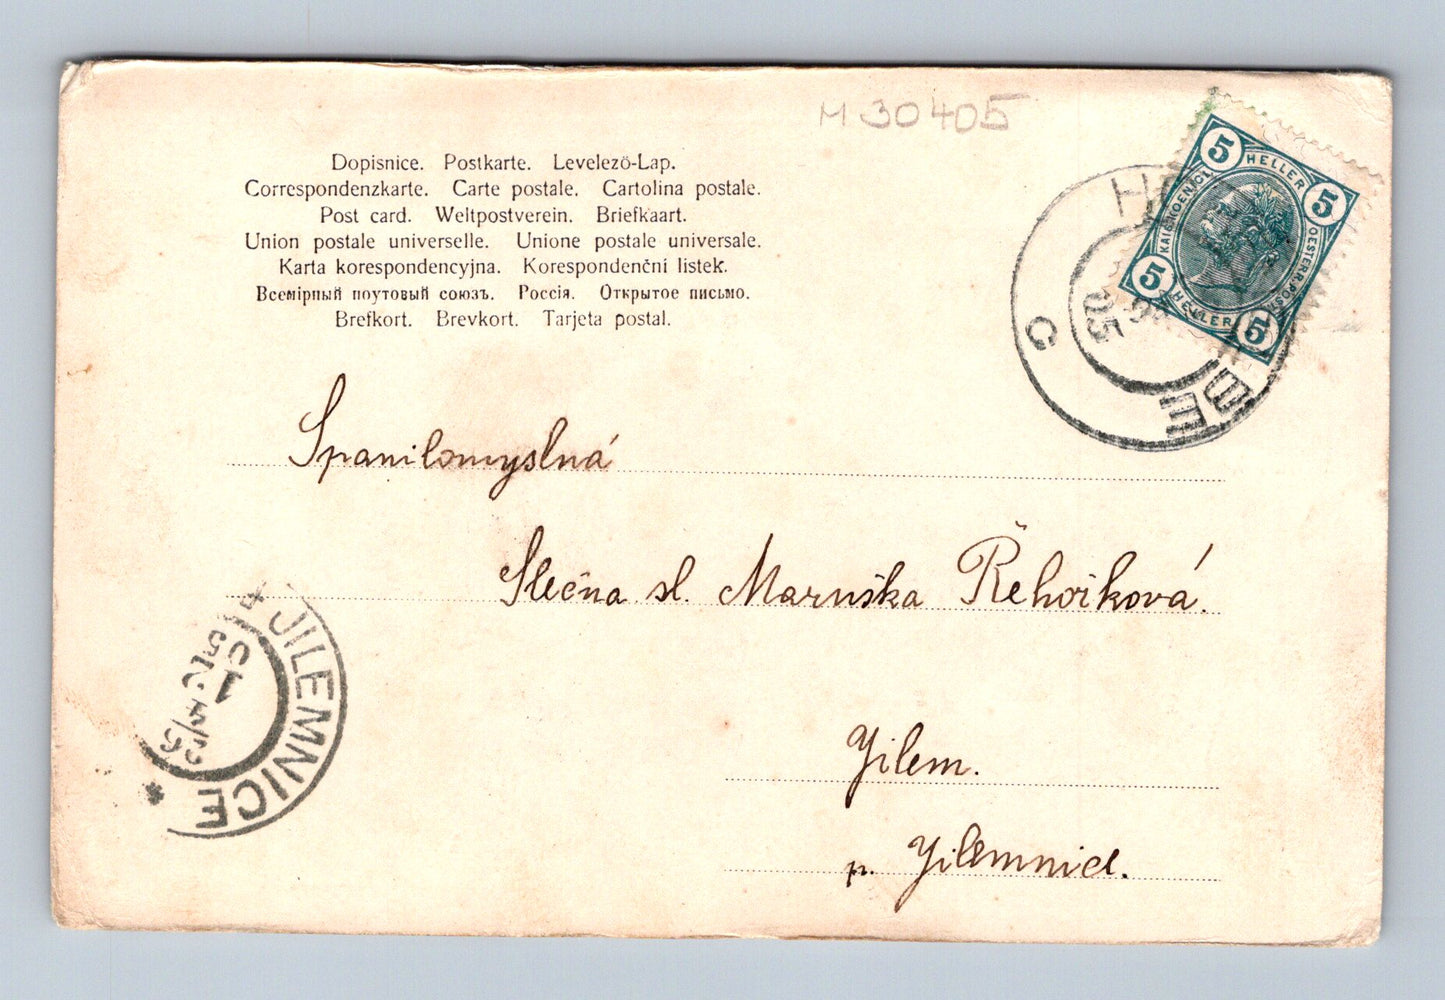 M 30405
Dopisnice. Postkarte. Levelező-Lap.
Correspondenzkarte. Carte postale. Cartolina postale.
Post card. Weltpostverein. Briefkaart.
Union postale universelle. Unione postale universale.
Karta korespondencyjna. Korespondenční listek.
Всемірный почтовый союзъ. Россія. Открытое письмо.
Brefkort. Brevkort. Tarjeta postal.
5 HELLER 5
KAIS. KOENIGL. OESTERR. POST
5 HELLER 5
05
C
BE
Spanilomyslná
Slečna sl. Maruška Řehořková.
Jilem.
p. Jilemnice.
JILEMNICE *